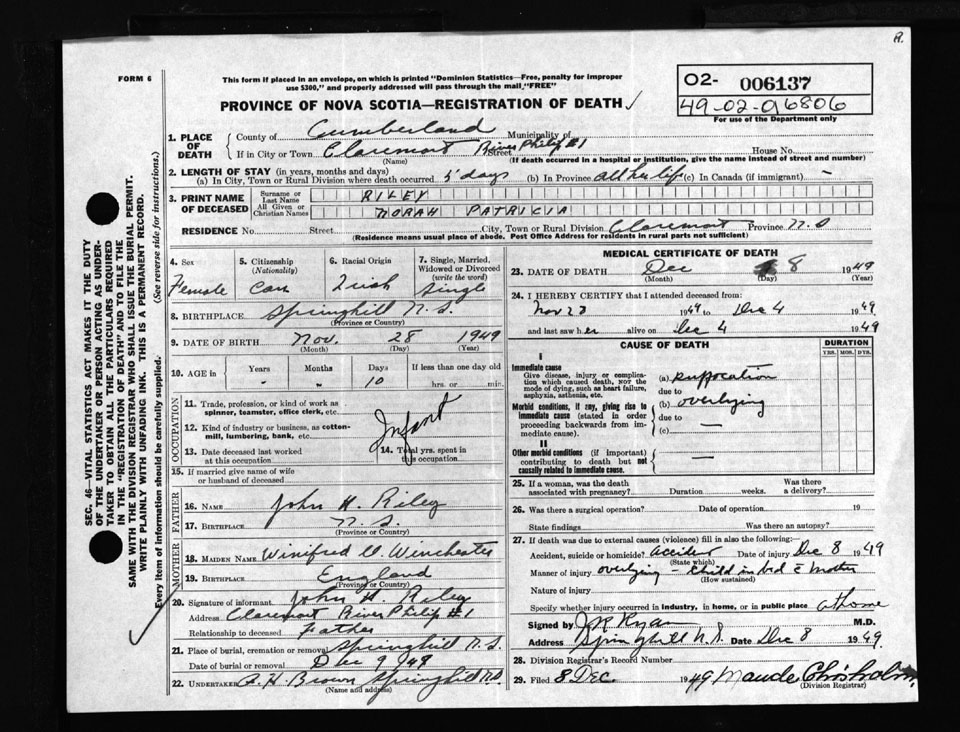 R.
FORM 6
This form if placed in an envelope, on which is printed "Dominion Statistics—Free, penalty for improper
use $300," and properly addressed will pass through the mail "FREE"
PROVINCE OF NOVA SCOTIA—REGISTRATION OF DEATH ✓
02- 006137
49-02-06806
For use of the Department only
1. PLACE OF DEATH
County of Cumberland Municipality of
If in City or Town Claremont Street River Philip #1 House No.
(Name) (If death occurred in a hospital or institution, give the name instead of street and number)
2. LENGTH OF STAY (in years, months and days)
(a) In City, Town or Rural Division where death occurred 5 days (b) In Province all her life (c) In Canada (if immigrant) -
3. PRINT NAME OF DECEASED
Surname or Last Name RILEY
All Given or Christian Names NORAH PATRICIA
RESIDENCE No. Street City, Town or Rural Division Claremont Province N.S
(Residence means usual place of abode. Post Office Address for residents in rural parts not sufficient)
4. Sex Female
5. Citizenship (Nationality) Can
6. Racial Origin Irish
7. Single, Married, Widowed or Divorced (write the word) Single
8. BIRTHPLACE Springhill N.S.
(Province or Country)
9. DATE OF BIRTH Nov. 28 1949
(Month) (Day) (Year)
10. AGE in Years - Months - Days 10 If less than one day old
hrs. or min.
OCCUPATION
11. Trade, profession, or kind of work as
spinner, teamster, office clerk, etc.
12. Kind of industry or business, as cotton-
mill, lumbering, bank, etc.
Infant
13. Date deceased last worked
at this occupation
14. Total yrs. spent in
this occupation
15. If married give name of wife
or husband of deceased
FATHER
16. NAME John H. Riley
17. BIRTHPLACE N.S.
(Province or Country)
MOTHER
18. MAIDEN NAME Winifred V. Winchester
19. BIRTHPLACE England
(Province or Country)
20. Signature of informant John H. Riley
Address Claremont River Philip #1
Relationship to deceased Father
21. Place of burial, cremation or removal Springhill N.S.
Date of burial or removal Dec 9 / 49
22. UNDERTAKER A. H. Brown Springhill N.S.
(Name and address)
MEDICAL CERTIFICATE OF DEATH
23. DATE OF DEATH Dec 8 1949
(Month) (Day) (Year)
24. I HEREBY CERTIFY that I attended deceased from:
Nov 28 1949 to Dec 4 1949
and last saw her alive on Dec 4 1949
CAUSE OF DEATH
DURATION
YRS. MOS. DYS.
I
Immediate cause
Give disease, injury or complica-
tion which caused death, NOT the
mode of dying, such as heart failure,
asphyxia, asthenia, etc.
(a) suffocation
due to
Morbid conditions, if any, giving rise to
immediate cause (stated in order
proceeding backwards from im-
mediate cause).
(b) overlying
due to
(c) —
II
Other morbid conditions (if important)
contributing to death but not
causally related to immediate cause.
—
25. If a woman, was the death
associated with pregnancy? Duration weeks. Was there
a delivery?
26. Was there a surgical operation? Date of operation 19
State findings Was there an autopsy?
27. If death was due to external causes (violence) fill in also the following:
Accident, suicide or homicide? accident Date of injury Dec 8 1949
(State which)
Manner of injury overlying - child in bed c̄ mother
(How sustained)
Nature of injury
Specify whether injury occurred in industry, in home, or in public place at home
Signed by J R Ryan M.D.
Address Springhill N.S. Date Dec 8 1949
28. Division Registrar's Record Number
29. Filed 8 Dec. 1949 Maude Chisholm
(Division Registrar)
SEC. 46—VITAL STATISTICS ACT MAKES IT THE DUTY
OF THE UNDERTAKER OR PERSON ACTING AS UNDER-
TAKER TO OBTAIN ALL THE PARTICULARS REQUIRED
IN THE "REGISTRATION OF DEATH" AND TO FILE THE
SAME WITH THE DIVISION REGISTRAR WHO SHALL ISSUE THE BURIAL PERMIT.
WRITE PLAINLY WITH UNFADING INK. THIS IS A PERMANENT RECORD.
Every item of information should be carefully supplied. (See reverse side for instructions.)